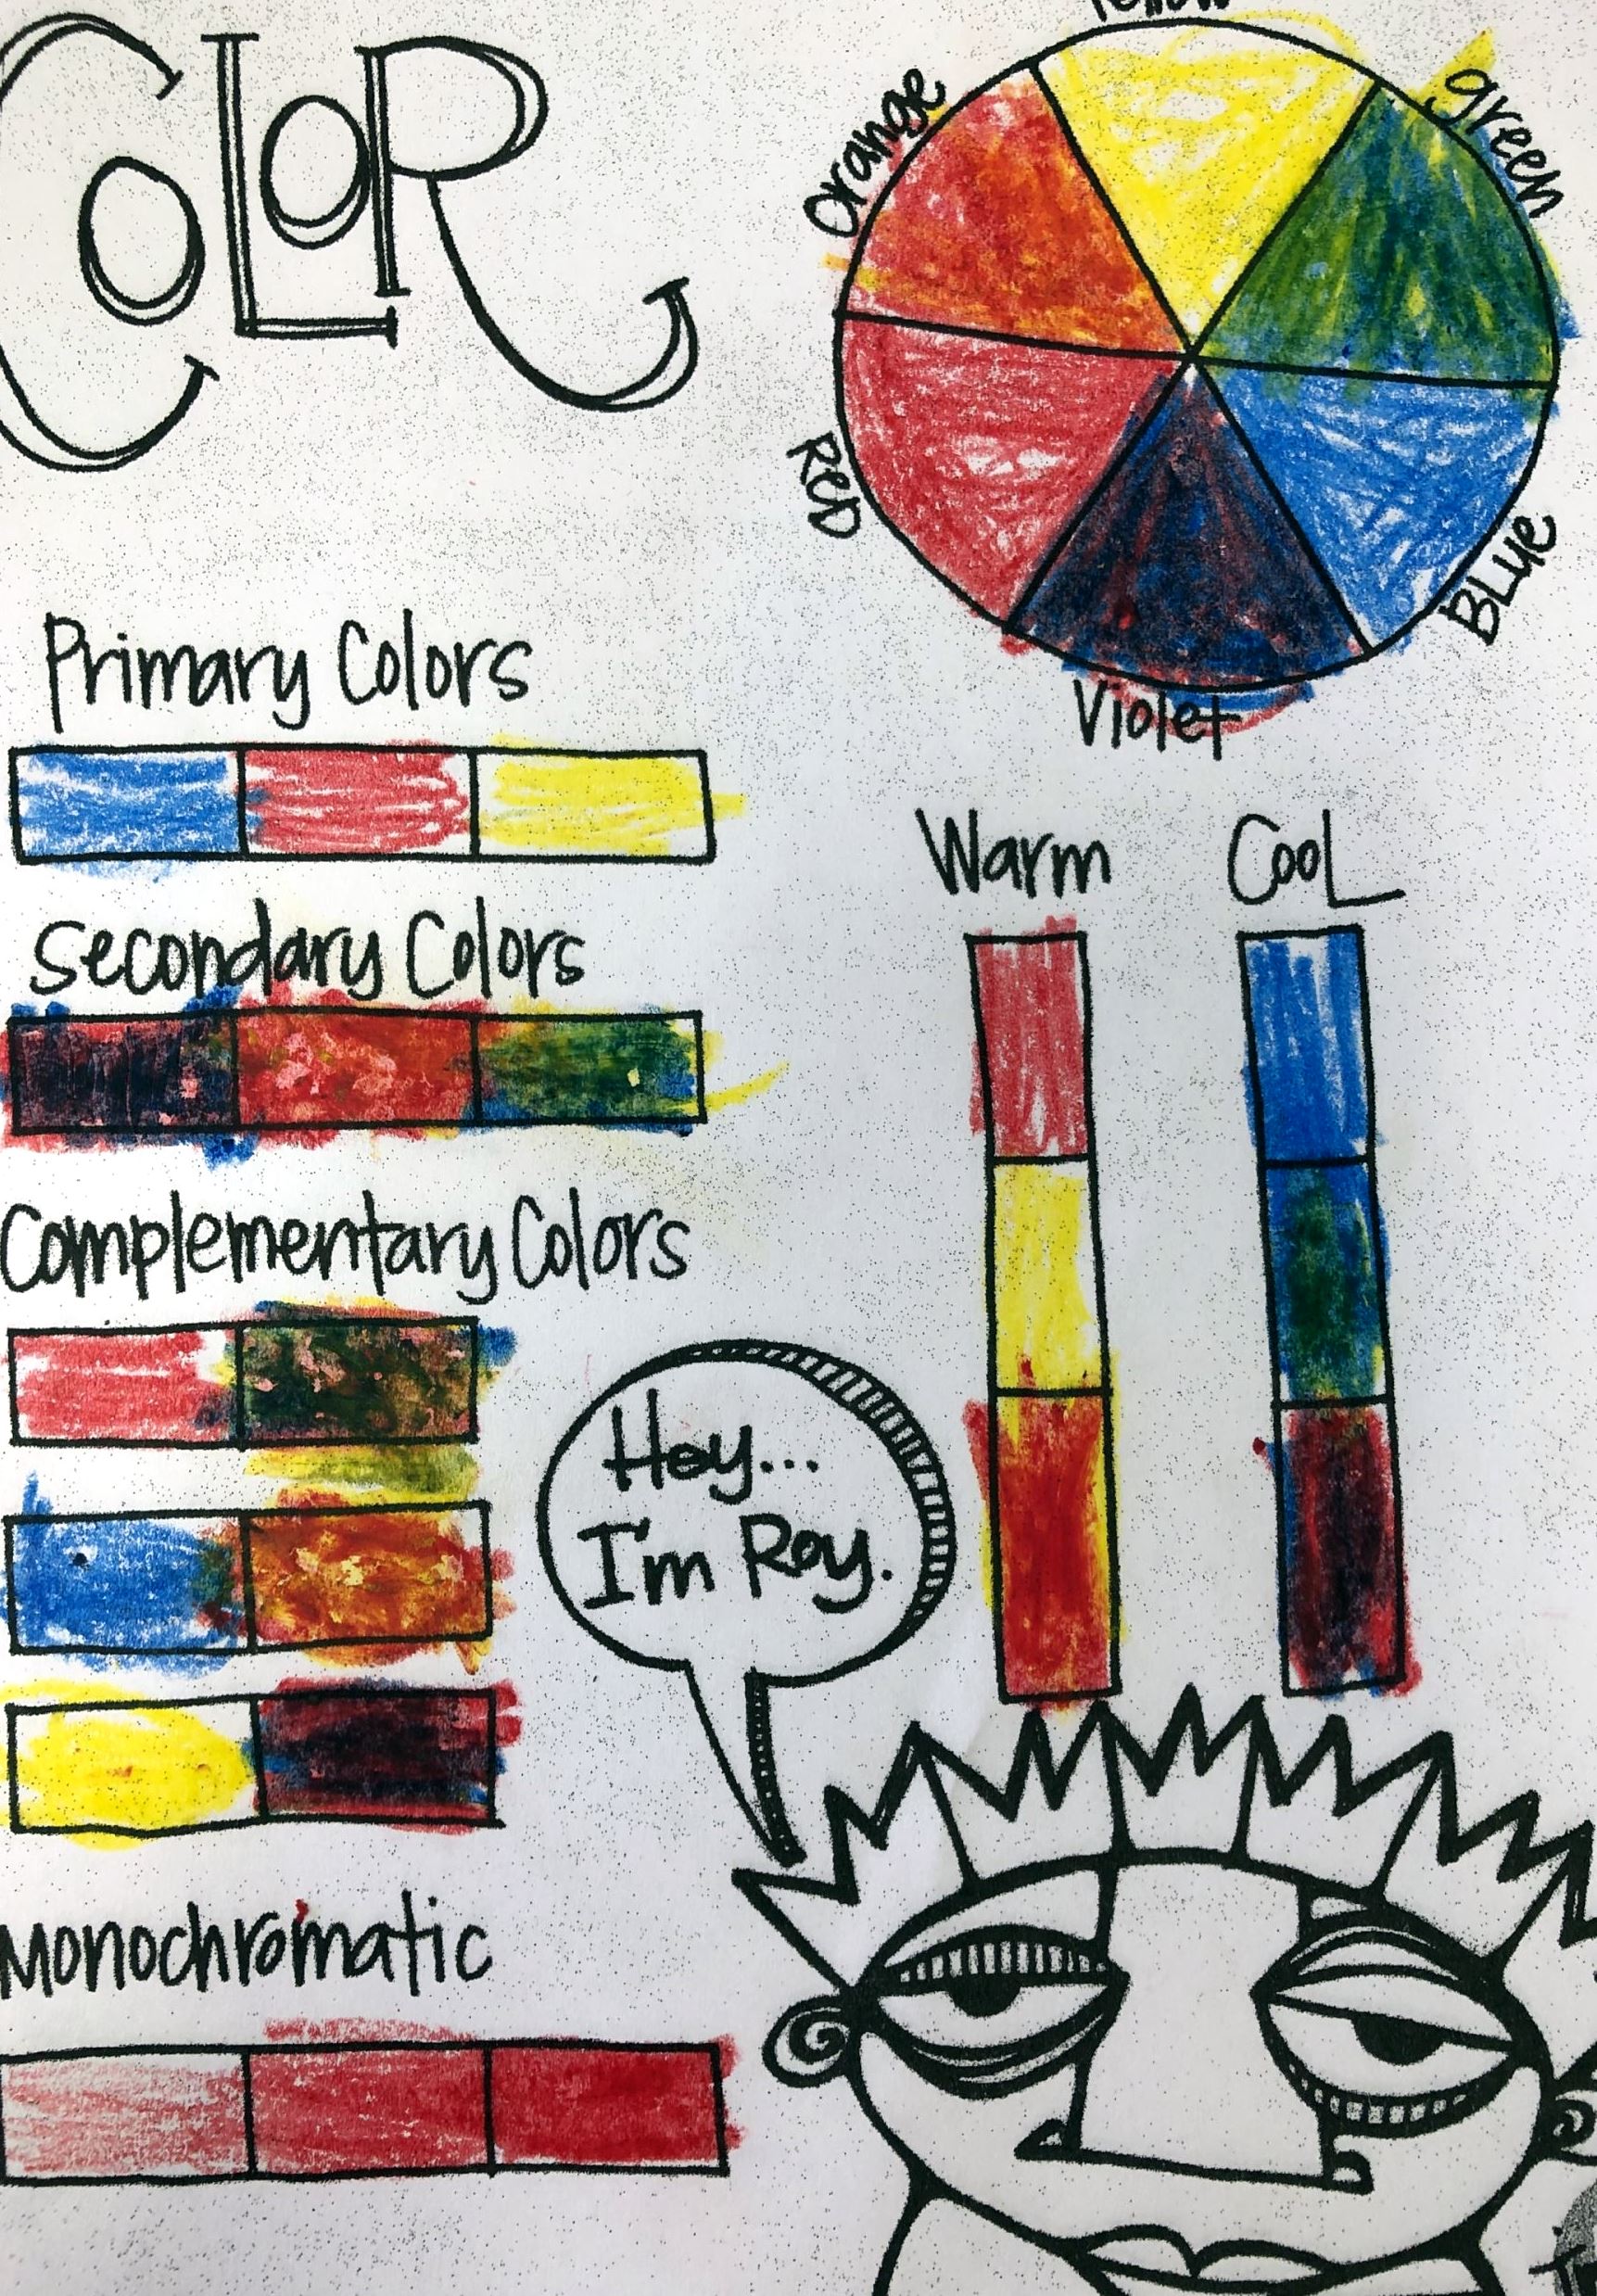 COLOR
Yellow
Orange
green
Red
Blue
Violet
Primary Colors
Warm
Cool
Secondary Colors
Complementary Colors
Hey...
I'm Roy.
Monochromatic